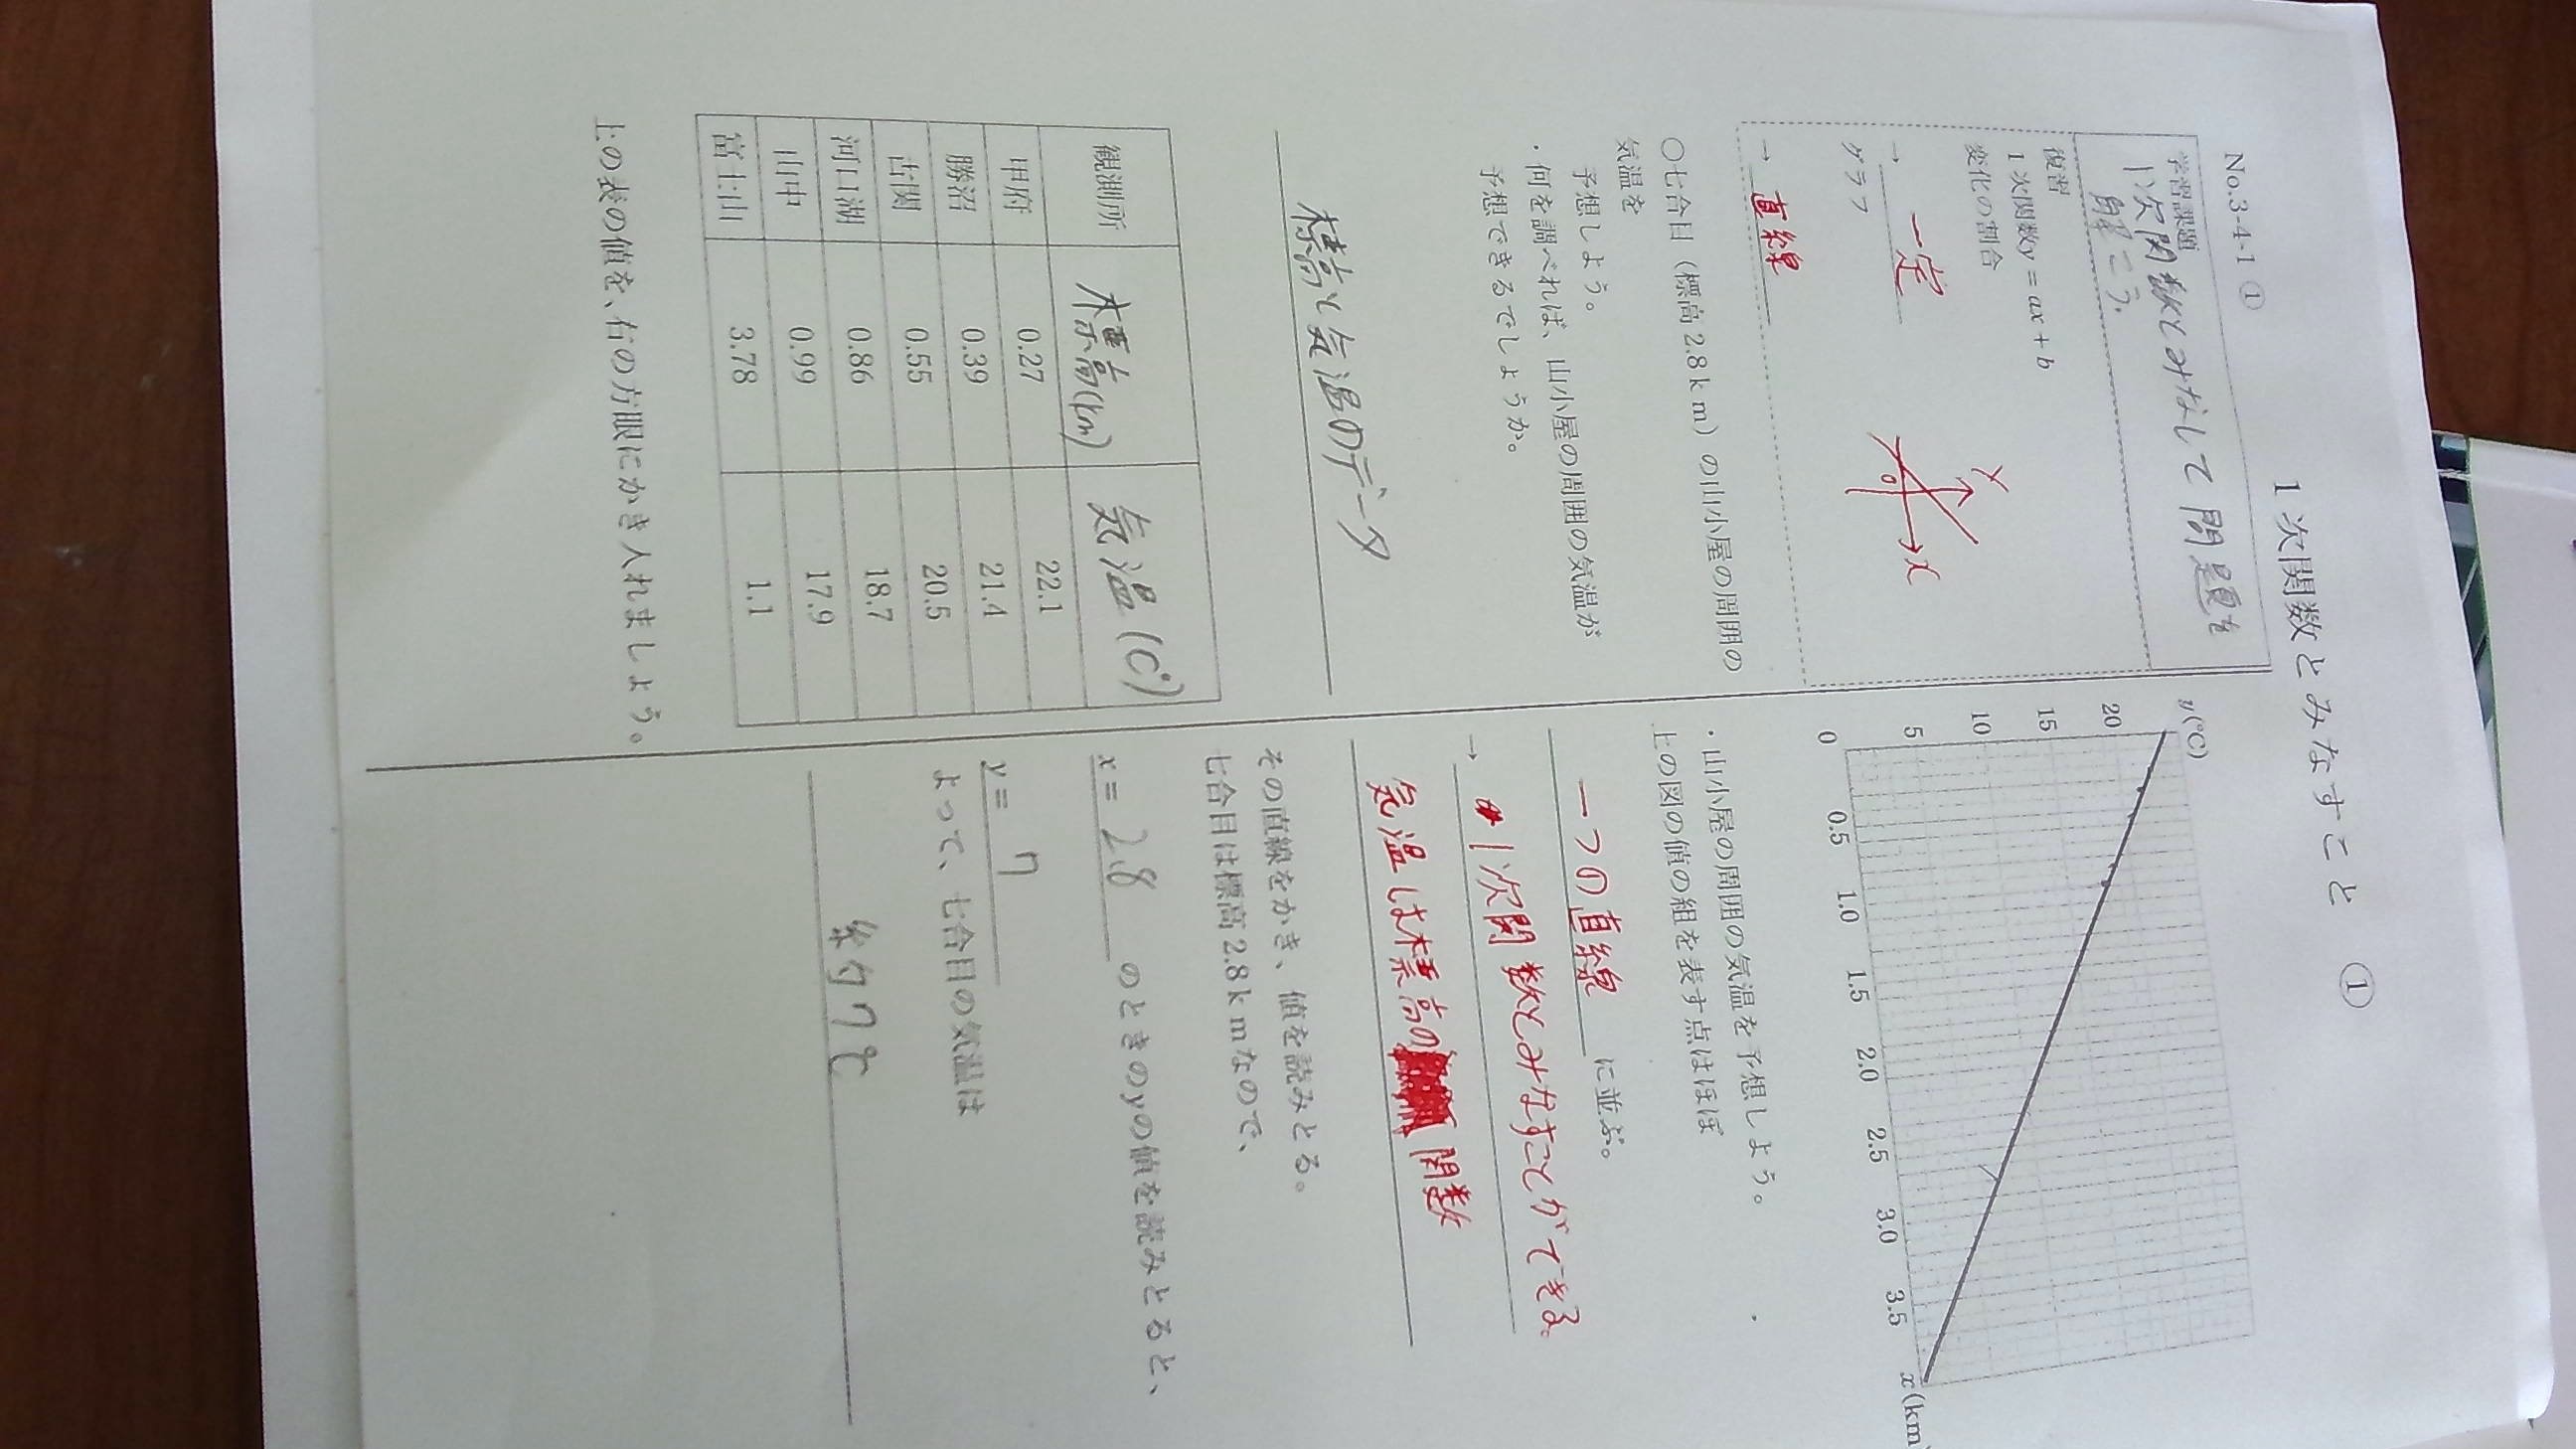 1次関数とみなすこと ①
No.3-4-1 ①
学習課題
1次関数とみなして問題を
解こう.
復習
1次関数y = ax + b
変化の割合
→ 一定
y
x
0
グラフ
→ 直線
○七合目（標高2.8km）の山小屋の周囲の
気温を
予想しよう。
・何を調べれば、山小屋の周囲の気温が
予想できるでしょうか。
標高と気温のデータ
観測所 標高(km) 気温(C°)
甲府 0.27 22.1
勝沼 0.39 21.4
古関 0.55 20.5
河口湖 0.86 18.7
山中 0.99 17.9
富士山 3.78 1.1
上の表の値を、右の方眼にかき入れましょう。
y(℃)
20
15
10
5
0 0.5 1.0 1.5 2.0 2.5 3.0 3.5 x(km
・山小屋の周囲の気温を予想しよう。
上の図の値の組を表す点はほぼ
一つの直線 に並ぶ。
→ 1次関数とみなすことができる。
気温は標高の 関数
その直線をかき、値を読みとる。
七合目は標高2.8kmなので、
x = 2.8 のときのyの値を読みとると、
y = 7
よって、七合目の気温は
約7℃